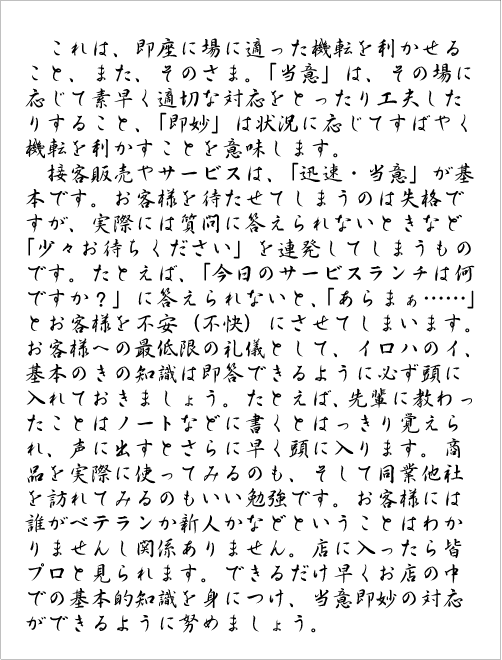 これは、即座に場に適った機転を利かせる
こと、また、そのさま。「当意」は、その場に
応じて素早く適切な対応をとったり工夫した
りすること、「即妙」は状況に応じてすばやく
機転を利かすことを意味します。
接客販売やサービスは、「迅速・当意」が基
本です。お客様を待たせてしまうのは失格で
すが、実際には質問に答えられないときなど
「少々お待ちください」を連発してしまうもの
です。たとえば、「今日のサービスランチは何
ですか？」に答えられないと、「あらまぁ……」
とお客様を不安（不快）にさせてしまいます。
お客様への最低限の礼儀として、イロハのイ、
基本のきの知識は即答できるように必ず頭に
入れておきましょう。たとえば、先輩に教わっ
たことはノートなどに書くとはっきり覚えら
れ、声に出すとさらに早く頭に入ります。商
品を実際に使ってみるのも、そして同業他社
を訪れてみるのもいい勉強です。お客様には
誰がベテランか新人かなどということはわか
りませんし関係ありません。店に入ったら皆
プロと見られます。できるだけ早くお店の中
での基本的知識を身につけ、当意即妙の対応
ができるように努めましょう。